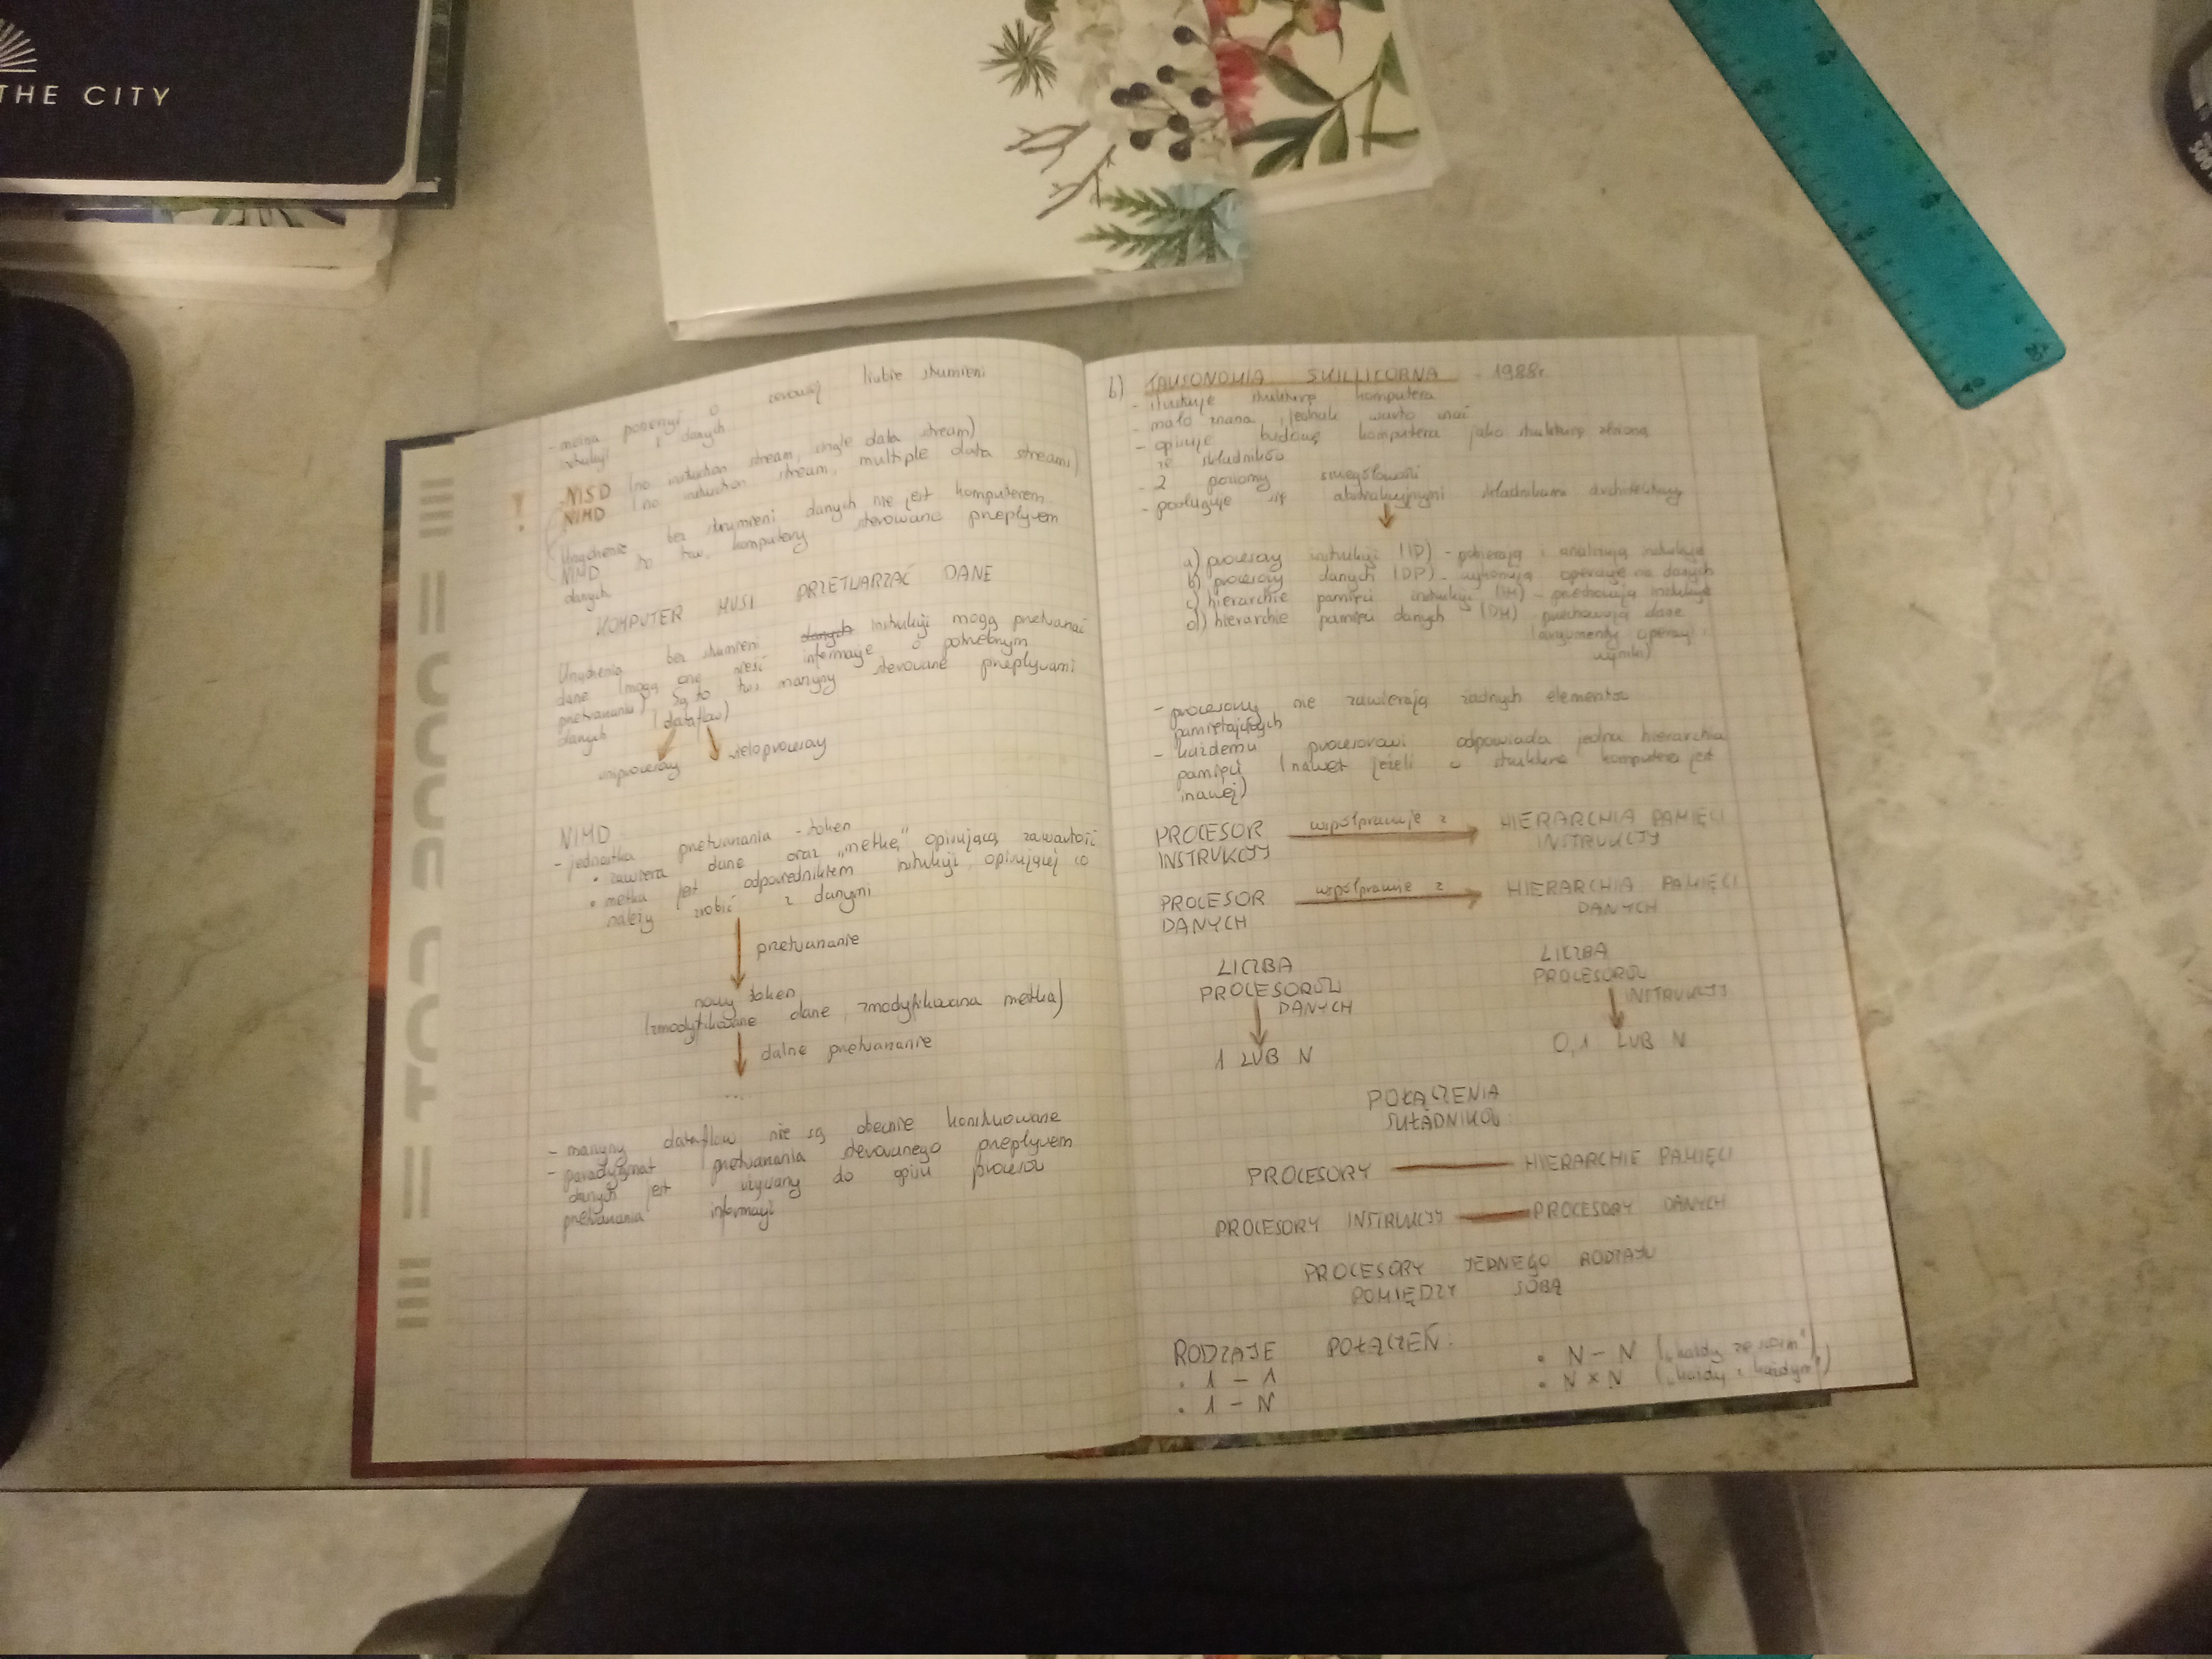 THE CITY
- można pomyśleć o zerowej liczbie strumieni
instrukcji i danych
! NISD (no instruction stream, single data stream)
NIMD (no instruction stream, multiple data streams)
Urządzenie bez strumieni danych nie jest komputerem.
NIMD to tzw. komputery sterowane przepływem
danych
KOMPUTER MUSI PRZETWARZAĆ DANE
Urządzenia bez strumieni instrukcji mogą przetwarzać
dane (mogą one nieść informacje o potrzebnym
przetwarzaniu) Są to tzw maszyny sterowane przepływami
danych (dataflow)
uniprocesory wieloprocesory
NIMD:
- jednostka przetwarzania - token
• zawiera dane oraz „metkę" opisującą zawartość
• metka jest odpowiednikiem instrukcji opisującej co
należy zrobić z danymi
przetwarzanie
nowy token
(zmodyfikowane dane, zmodyfikowana metka)
dalsze przetwarzanie
...
- maszyny dataflow nie są obecnie konstruowane
- paradygmat przetwarzania sterowanego przepływem
danych jest używany do opisu procesów
przetwarzania informacji
b) TAKSONOMIA SKILLICORNA - 1988r.
- ilustruje strukturę komputera
- mało znana, jednak warto znać
- opisuje budowę komputera jako strukturę złożoną
ze składników
- 2 poziomy szczegółowości
- posługuje się abstrakcyjnymi składnikami architektury
a) procesory instrukcji (IP) - pobierają i analizują instrukcje
b) procesory danych (DP) - wykonują operacje na danych
c) hierarchie pamięci instrukcji (IM) - przechowują instrukcje
d) hierarchie pamięci danych (DM) - przechowują dane
(argumenty operacji
wyniki)
- procesory nie zawierają żadnych elementów
pamiętających
- każdemu procesorowi odpowiada jedna hierarchia
pamięci (nawet jeżeli w strukturze komputera jest
inaczej)
PROCESOR współpracuje z HIERARCHIA PAMIĘCI
INSTRUKCJI INSTRUKCJI
PROCESOR współpracuje z HIERARCHIA PAMIĘCI
DANYCH DANYCH
LICZBA LICZBA
PROCESORÓW PROCESORÓW
DANYCH INSTRUKCJI
1 LUB N 0,1 LUB N
POŁĄCZENIA
SKŁADNIKÓW:
PROCESORY HIERARCHIE PAMIĘCI
PROCESORY INSTRUKCJI PROCESORY DANYCH
PROCESORY JEDNEGO RODZAJU
POMIĘDZY SOBĄ
RODZAJE POŁĄCZEŃ:
• 1 - 1 • N - N („każdy ze swoim")
• 1 - N • N × N („każdy z każdym")